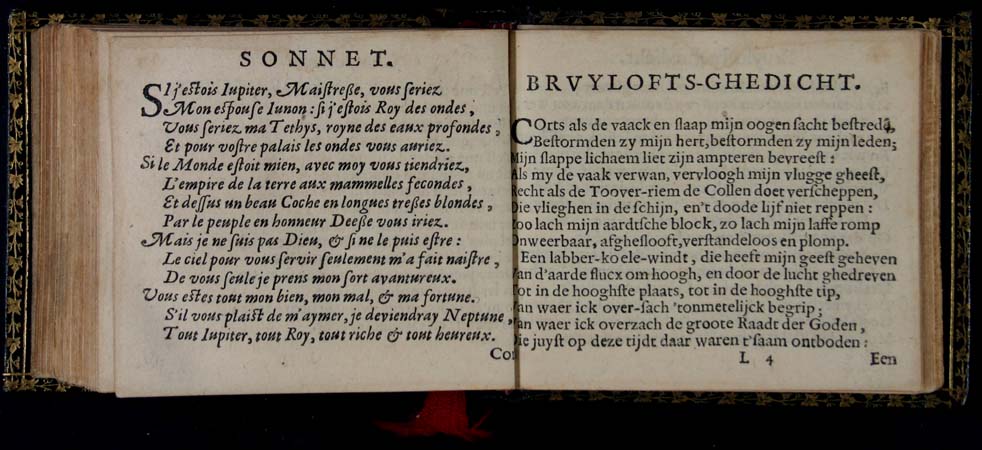 SONNET.
SI j'estois Iupiter, Maistreße, vous seriez
Mon espouse Iunon: si j'estois Roy des ondes,
Vous seriez ma Tethys, royne des eaux profondes,
Et pour vostre palais les ondes vous auriez.
Si le Monde estoit mien, avec moy vous tiendriez,
L'empire de la terre aux mammelles fecondes,
Et dessus un beau Coche en longues treßes blondes,
Par le peuple en honneur Deeße vous iriez.
Mais je ne suis pas Dieu, & si ne le puis estre:
Le ciel pour vous servir seulement m'a fait naistre,
De vous seule je prens mon sort avantureux.
Vous estes tout mon bien, mon mal, & ma fortune.
S'il vous plaist de m'aymer, je deviendray Neptune,
Tout Iupiter, tout Roy, tout riche & tout heureux.
BRVYLOFTS-GHEDICHT.
COrts als de vaack en slaap mijn oogen sacht bestreden,
Bestormden zy mijn hert, bestormden zy mijn leden;
Mijn slappe lichaem liet zijn ampteren bevreest:
Als my de vaak verwan, vervloogh mijn vlugge gheest,
Recht als de Toover-riem de Collen doet verscheppen,
Die vlieghen in de schijn, en't doode lijf niet reppen:
Zoo lach mijn aardtsche block, zo lach mijn laffe romp
Onweerbaar, afgheslooft, verstandeloos en plomp.
Een labber-koele-windt, die heeft mijn geest geheven
Van d'aarde flucx om hoogh, en door de lucht ghedreven
Tot in de hooghste plaats, tot in de hooghste tip,
Van waer ick over-sach 'tonmetelijck begrip;
Van waer ick overzach de groote Raadt der Goden,
Die juyst op deze tijdt daar waren t'saam ontboden:
L 4 Een